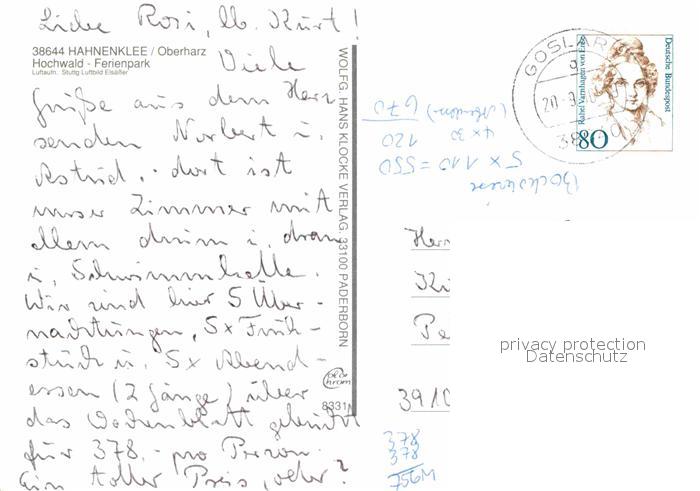 Liebe Rosi, lb. Kurt!
38644 HAHNENKLEE / Oberharz
Hochwald - Ferienpark
Luftaufn. Stuttg Luftbild Elsäßer
Viele
Grüße aus dem Harz
senden Norbert u.
Astrid. dort ist
unser Zimmer mit
allem drum u. dran
u. Schwimmhalle.
Wir sind hier 5 Über-
nachtungen, 5x Früh-
stück u. 5x Abend-
essen (2 Gänge) über
das Wochenblatt gebucht
für 378,- pro Person.
Ein toller Preis, oder?
WOLFG. HANS KLOCKE VERLAG. 33100 PADERBORN
8331
GOSLAR
20
38
Deutsche Bundespost
Rahel Varnhagen von Ense
80
5 x 110 = 550
4 x 30
120
670
Herr
Ki
Pe
3910
privacy protection
Datenschutz
378
378
756